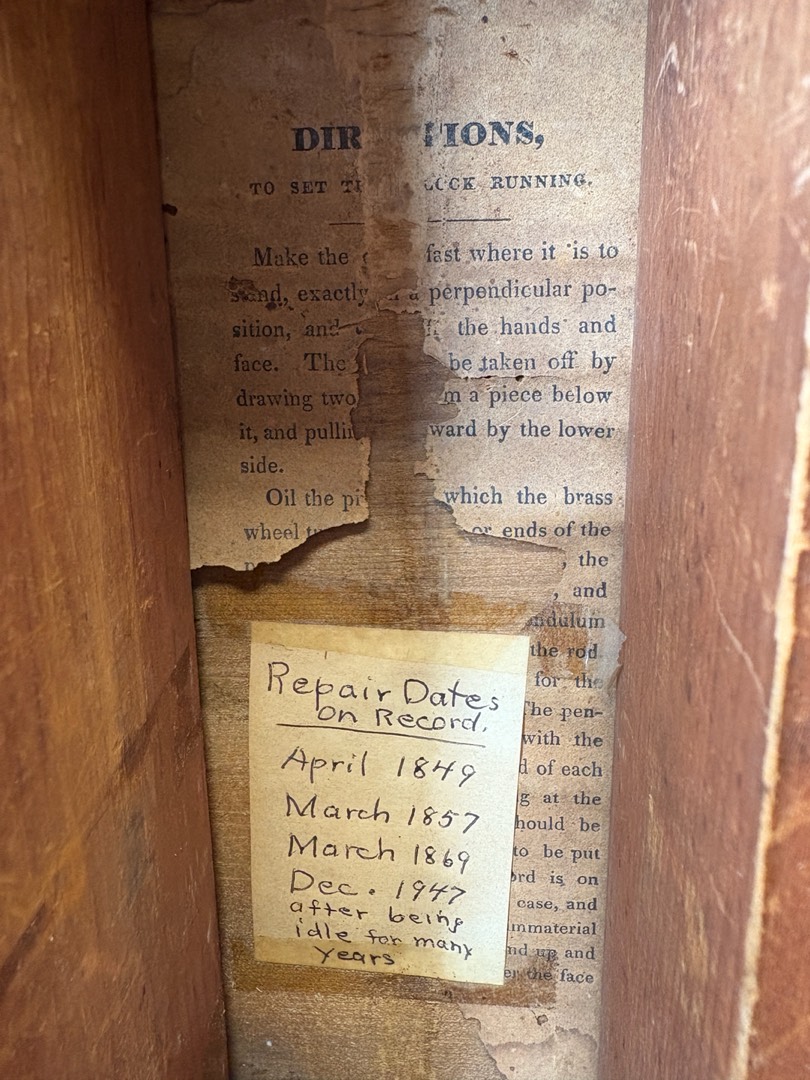 DIR TIONS,
TO SET T LOCK RUNNING.
Make the fast where it is to
stand, exactly a perpendicular po-
sition, and the hands and
face. The be taken off by
drawing two a piece below
it, and pullin ward by the lower
side.
Oil the pi which the brass
wheel or ends of the
, the
, and
ndulum
the rod
for the
The pen-
with the
d of each
g at the
hould be
to be put
ord is on
case, and
mmaterial
nd up and
er the face
Repair Dates
on Record.
April 1849
March 1857
March 1869
Dec. 1947
after being
idle for many
years